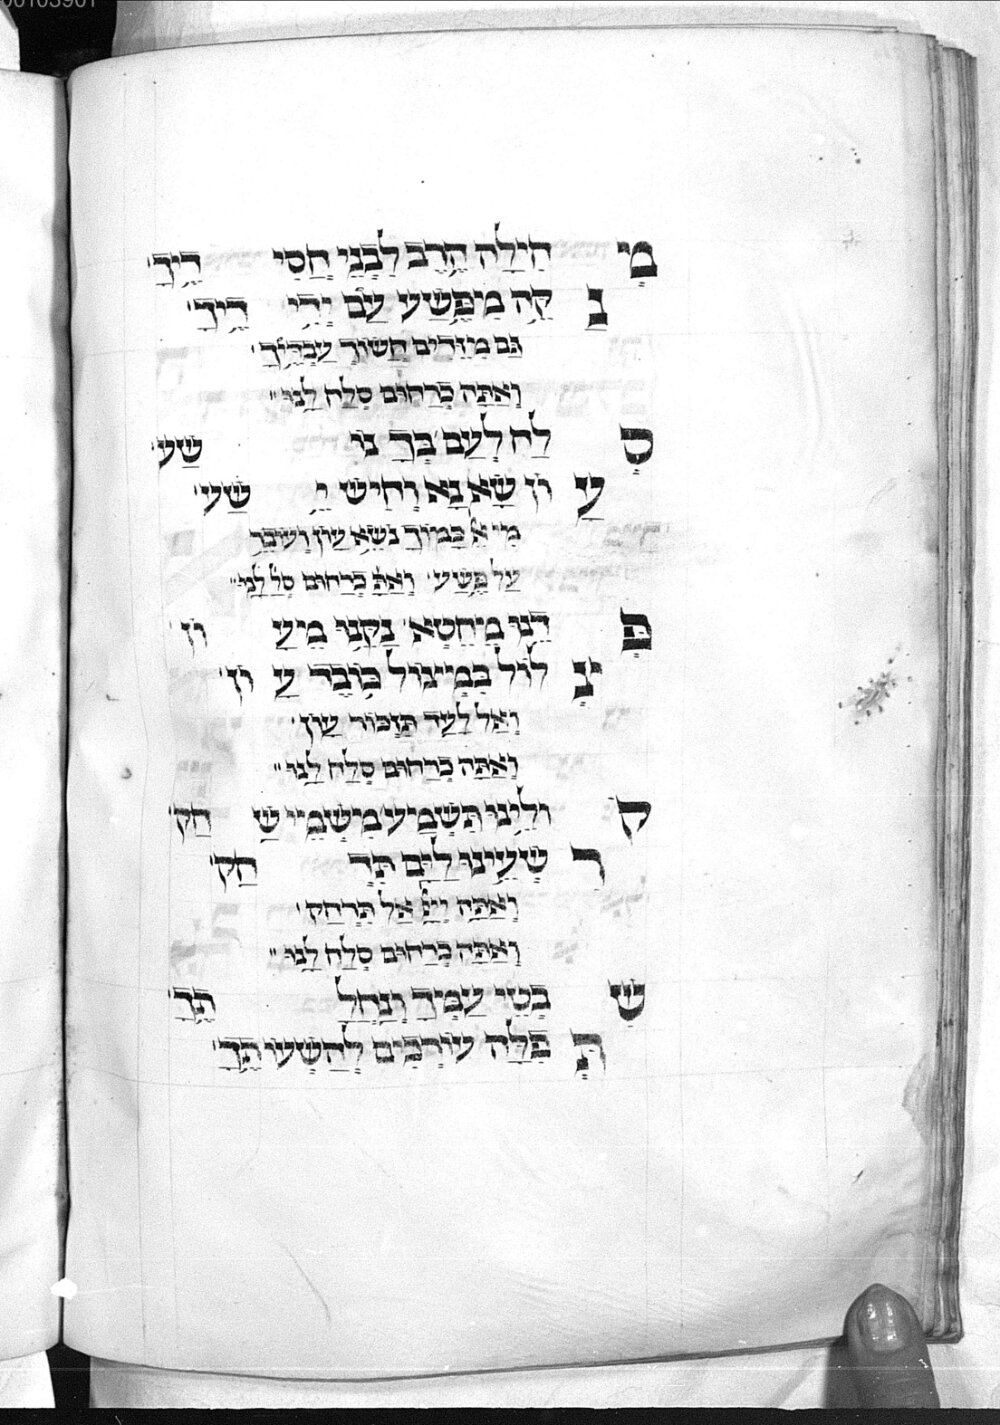 00103901
מְ חִילָה הָרֵב לִבְנֵי חֲסִי דֶיךָ׳
נַ קֵּה מִפֶּשַׁע עַם יָדִי דֶיךָ׳
גַּם מִזֵּדִים חֲשׂוֹךְ עֲבָדֶיךָ׳
וְאַתָּה כְּרַחוּם סְלַח לָנוּ״
סְ לַח לְעַם בְּךָ נוֹ שַׁע׳
עָ וֹן שָׂא נָא וְחִישׁ יֵ שַׁע׳
מִי אֵל כָּמוֹךָ נֹשֵׂא עָוֹן וְעוֹבֵר
עַל פֶּשַׁע׳ וְאַתָּ כְּרַחוּם סְלַ לָנוּ״
פְּ דֵנוּ מֵחֵטְא׳ נַקֵּנוּ מֵעָ וֹן׳
צְ לוֹל בִּמְצוֹל כּוֹבֶד עָ וֹן׳
וְאַל לָעַד תִּזְכּוֹר עָוֹן׳
וְאַתָּה כְּרַחוּם סְלַח לָנוּ״
ק וֹלֵינוּ תִּשְׁמַע מִשְּׁמֵי שַׁ חַק׳
רְ שָׁעֵינוּ לַיָּם תִּדְ חַק׳
וְאַתָּה יְיָ אַל תִּרְחַק׳
וְאַתָּה כְּרַחוּם סְלַח לָנוּ״
שִׁ בְטֵי עַמְּךָ וְנַחֲלָ תֶךָ׳
תְּ פִלָּה עוֹרְכִים לְהִשָּׁעוֹתֶךָ׳